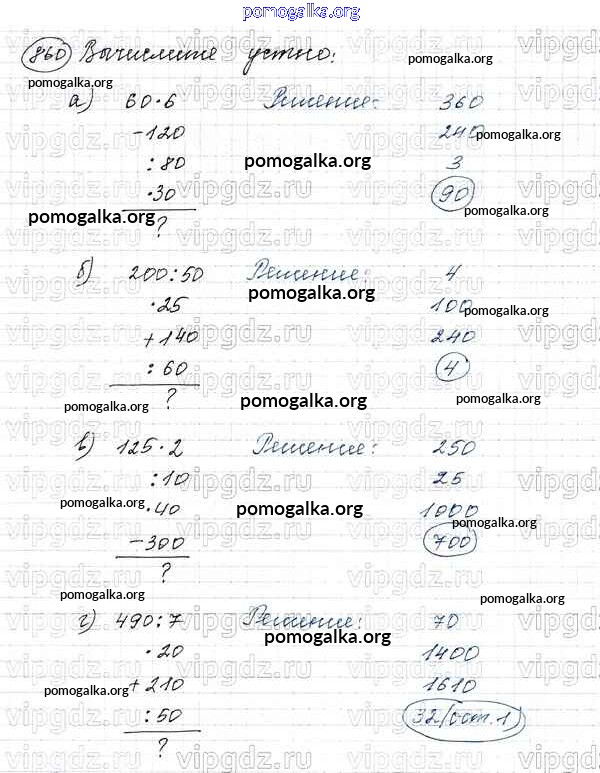 pomogalka.org
860 Вычислите устно: pomogalka.org
pomogalka.org
а) 60·6 Решение: 360
-120 240 pomogalka.org
:80 pomogalka.org 3
·30 90
pomogalka.org ? pomogalka.org
б) 200:50 Решение: 4
pomogalka.org
·25 100 pomogalka.org
+140 240
:60 4
? pomogalka.org pomogalka.org pomogalka.org
в) 125·2 Решение: 250
:10 25
pomogalka.org ·40 pomogalka.org 1000
pomogalka.org
-300 700
?
pomogalka.org
г) 490:7 Решение: 70
pomogalka.org
·20 1400
pomogalka.org +210 1610
:50 32(ост.1)
?
vipgdz.ru